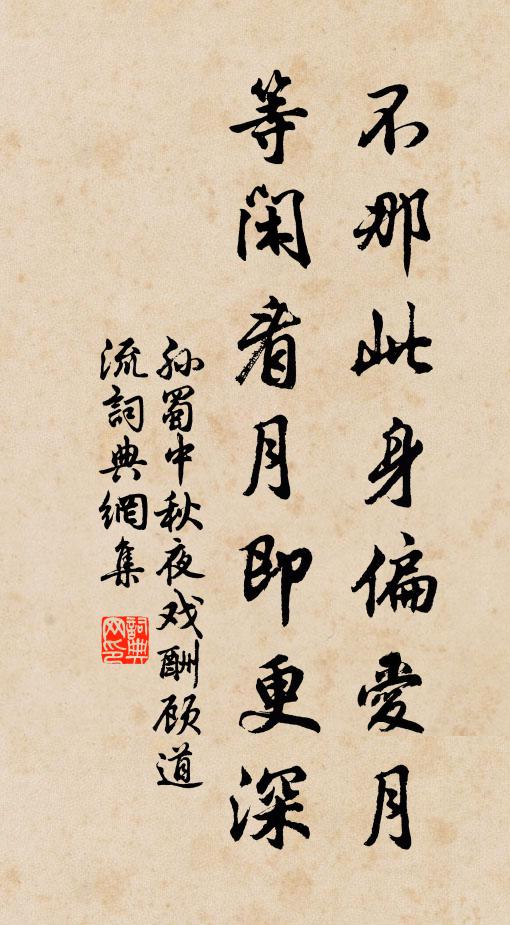 不那此身偏愛月
等闲看月即更深
孙蜀中秋夜戏酬顾道
流詞典網集
詞典
网印